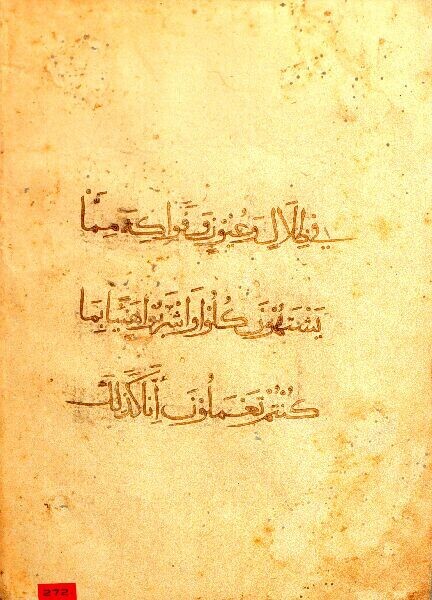 في ظِلَالٍ وَعُيُونٍ وَفَوَاكِهَ مِمَّا
يَشْتَهُوْنَ كُلُوْا وَاشْرَبُوا هَنِيئًا بِمَا
كُنْتُمْ تَعْمَلُوْنَ إِنَّا كَذَلِكَ
272